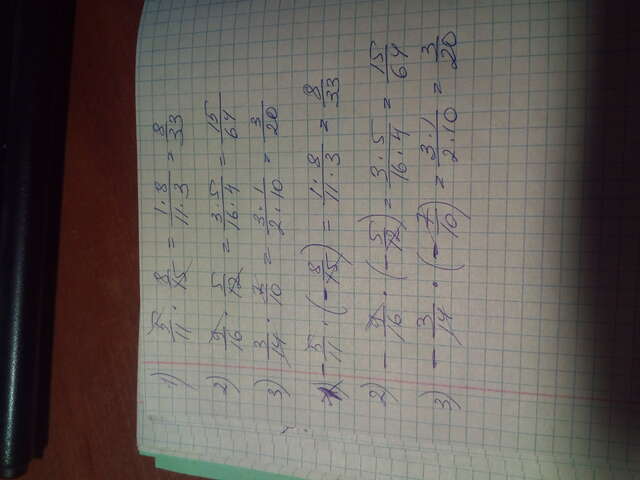 1) 5/11 · 8/15 = 1·8/11·3 = 8/33
2) 9/16 · 5/12 = 3·5/16·4 = 15/64
3) 3/14 · 7/10 = 3·1/2·10 = 3/20
1) -5/11 · (-8/15) = 1·8/11·3 = 8/33
2) -9/16 · (-5/12) = 3·5/16·4 = 15/64
3) -3/14 · (-7/10) = 3·1/2·10 = 3/20